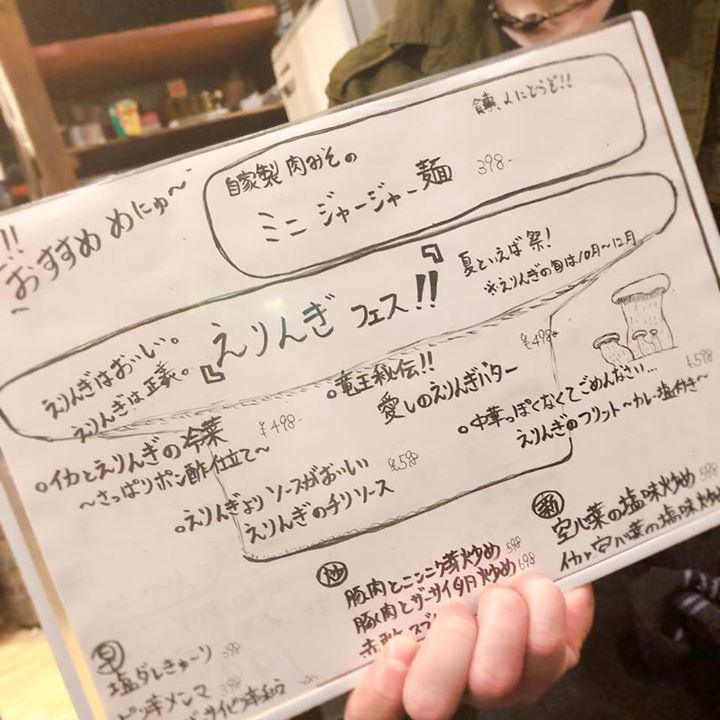 おすすめ めにゅ〜
自家製 肉みその
ミニ ジャージャー麺 398-
えりんぎはおいしい。
えりんぎは正義。
『えりんぎ フェス!!』
夏といえば祭!
※えりんぎの旬は10月〜12月
○イカとえりんぎの冷菜 ¥498-
〜さっぱりポン酢仕立て〜
○竜王秘伝!! ¥498-
愛しのえりんぎバター
○えりんぎよりソースがおいしい ¥598
えりんぎのチリソース
○中華っぽくなくてごめんなさい… ¥598
えりんぎのフリット〜カレー塩付き〜
早
塩ダレきゅーり 398
メンマ
炒
豚肉とニンニク芽炒め 598
豚肉とザーサイタ月炒め 698
新
空心菜の塩味炒め 598
イカと空心菜の塩味炒め